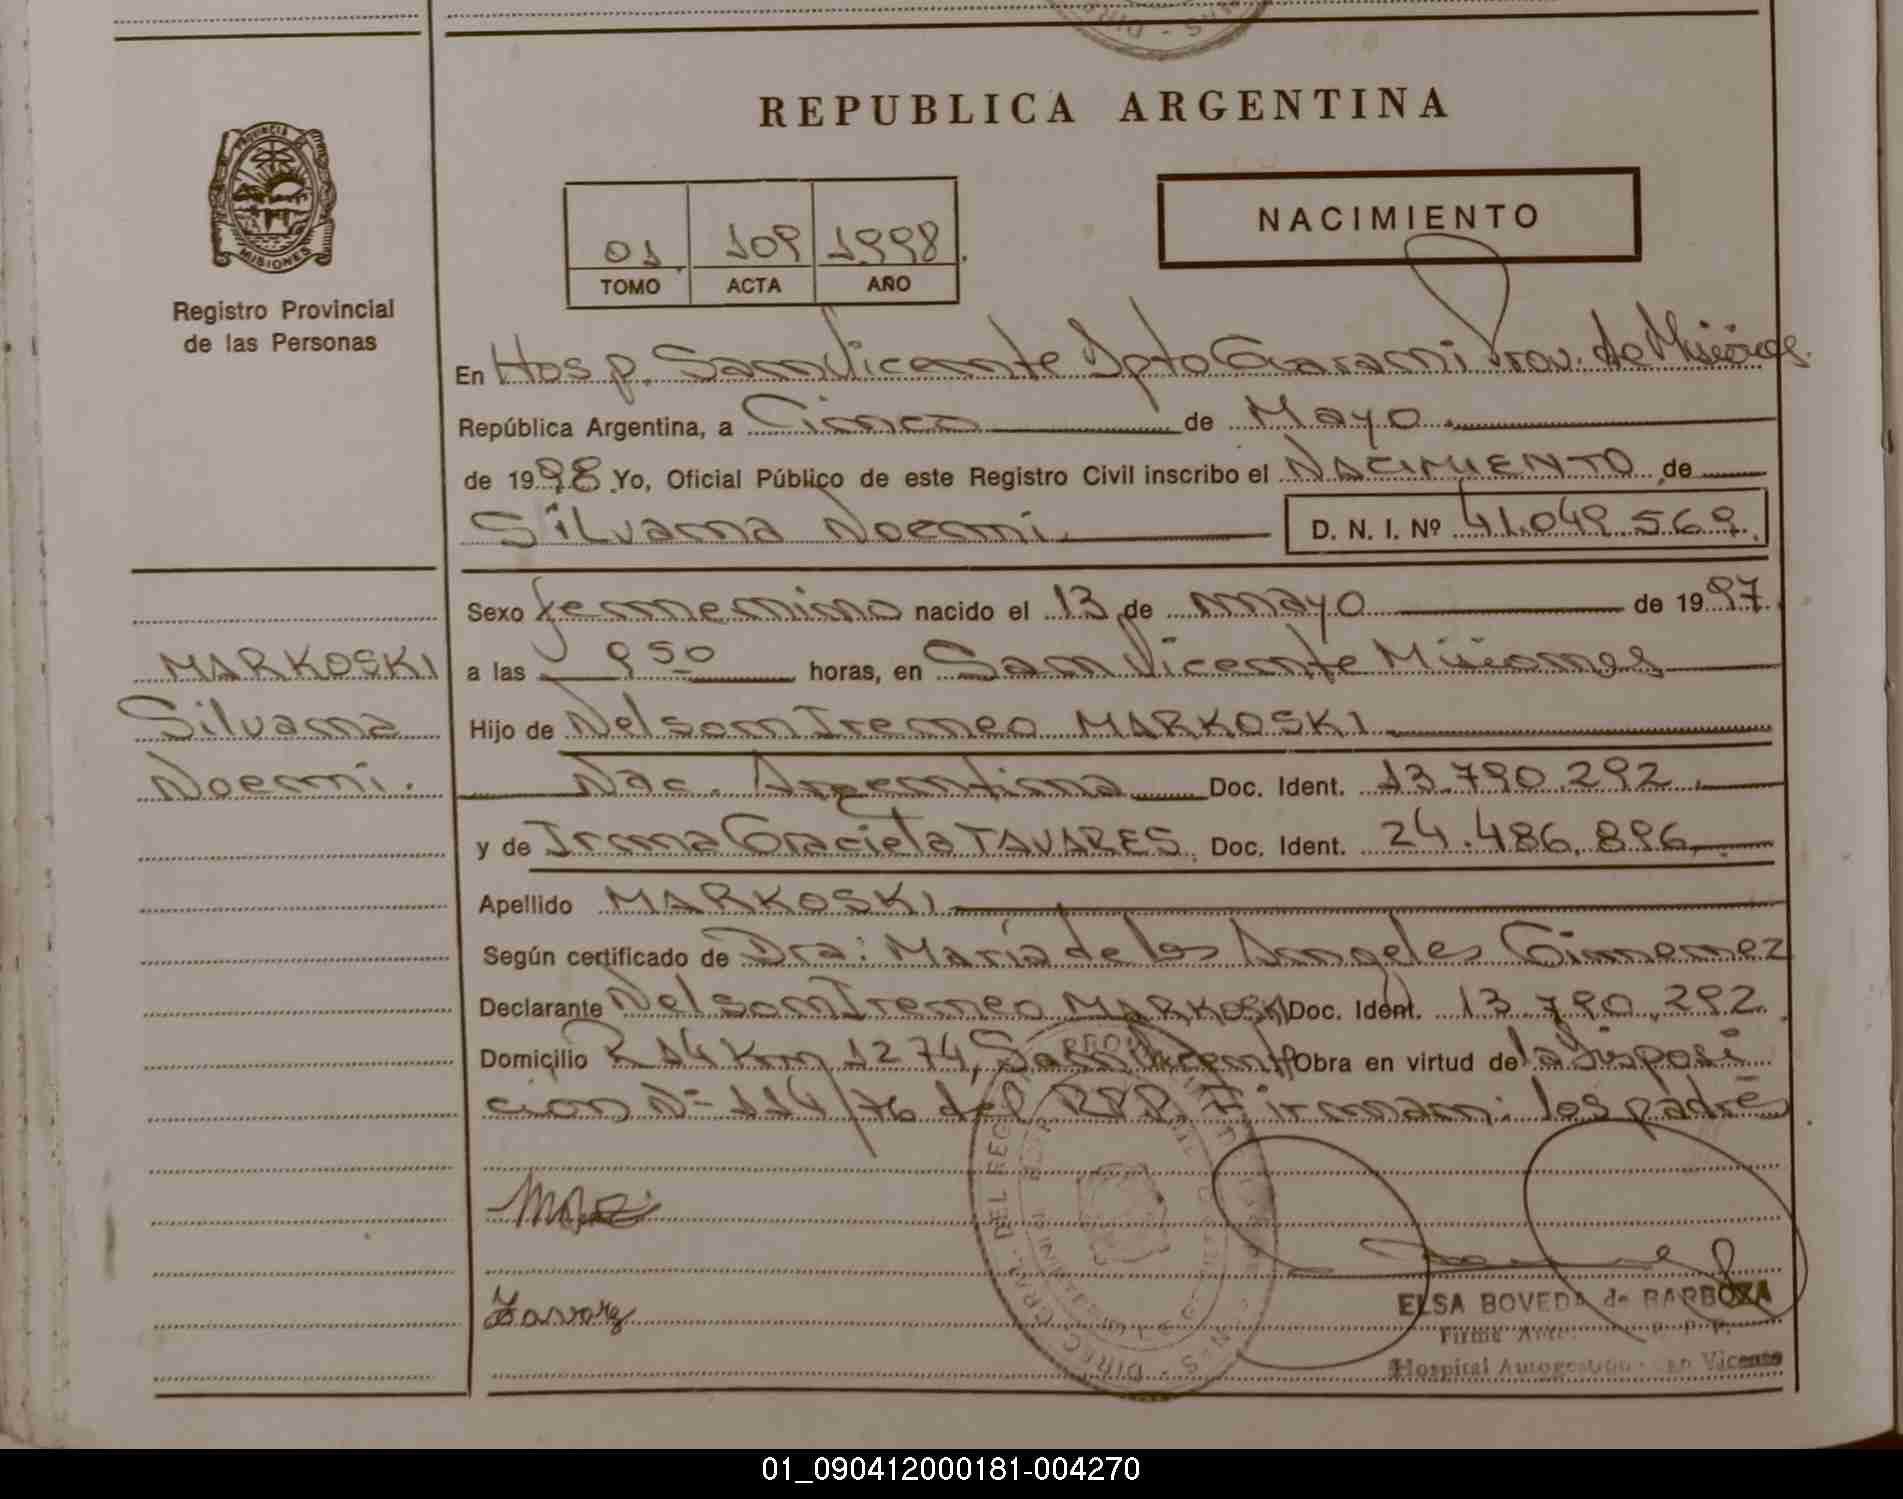 REPUBLICA ARGENTINA
PROVINCIA DE
MISIONES
Registro Provincial
de las Personas
01 109 1998
TOMO ACTA AÑO
NACIMIENTO
En Hosp. San Vicente Dpto Guarani Prov. de Misiones.
República Argentina, a Cinco de Mayo
de 1998 Yo, Oficial Público de este Registro Civil inscribo el NACIMIENTO de
Silvana Noemi. D. N. I. Nº 41.049.569.
Sexo femenino nacido el 13 de mayo de 1997.
a las 9 50 horas, en San Vicente Misiones
Hijo de Nelson Ireneo MARKOSKI
Nac. Argentina Doc. Ident. 13.790.292.
y de Irma Graciela TAVARES. Doc. Ident. 24.486.896
Apellido MARKOSKI
Según certificado de Dra: María de los Angeles Gimenez
Declarante Nelson Ireneo MARKOSKI Doc. Ident. 13.790.292
Domicilio R 14 Km 1274, San Vicente Obra en virtud de la Disposi
cion Nº 114/76 del RPP. Firman: los padres
MARKOSKI
Silvana
Noemi.
Tavarez
ELSA BOVEDA de BARBOZA
Firma
Hospital Autogestión San Vicente
01_090412000181-004270